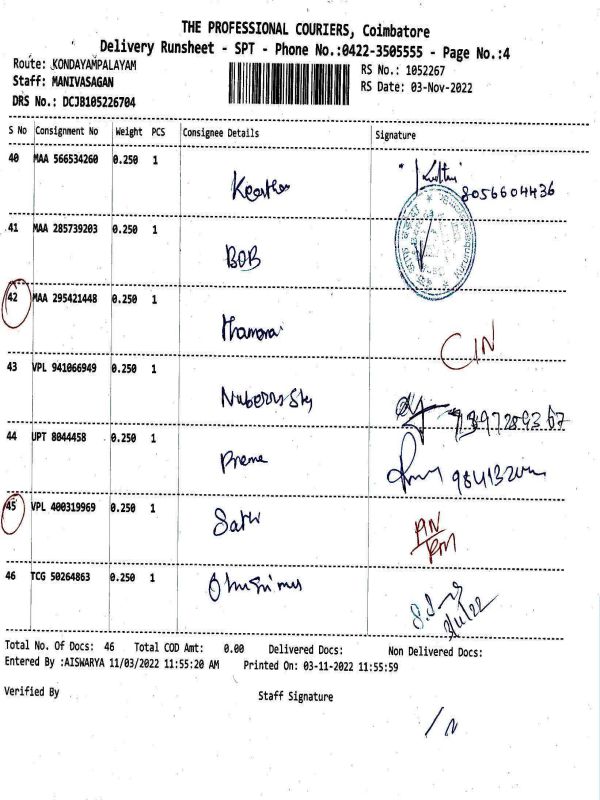 THE PROFESSIONAL COURIERS, Coimbatore
Delivery Runsheet - SPT - Phone No.:0422-3505555 - Page No.:4
Route: KONDAYAMPALAYAM
RS No.: 1052267
Staff: MANIVASAGAN
RS Date: 03-Nov-2022
DRS No.: DCJB105226704
S No Consignment No Weight PCS Consignee Details Signature
40 MAA 566534260 0.250 1
8056604436
41 MAA 285739203 0.250 1 BOB
42 MAA 295421448 0.250 1
CIN
43 VPL 941066949 0.250 1
44 UPT 8044458 0.250 1 Preme
45 VPL 400319969 0.250 1
46 TCG 50264863 0.250 1
Total No. Of Docs: 46 Total COD Amt: 0.00 Delivered Docs: Non Delivered Docs:
Entered By :AISWARYA 11/03/2022 11:55:20 AM Printed On: 03-11-2022 11:55:59
Verified By Staff Signature